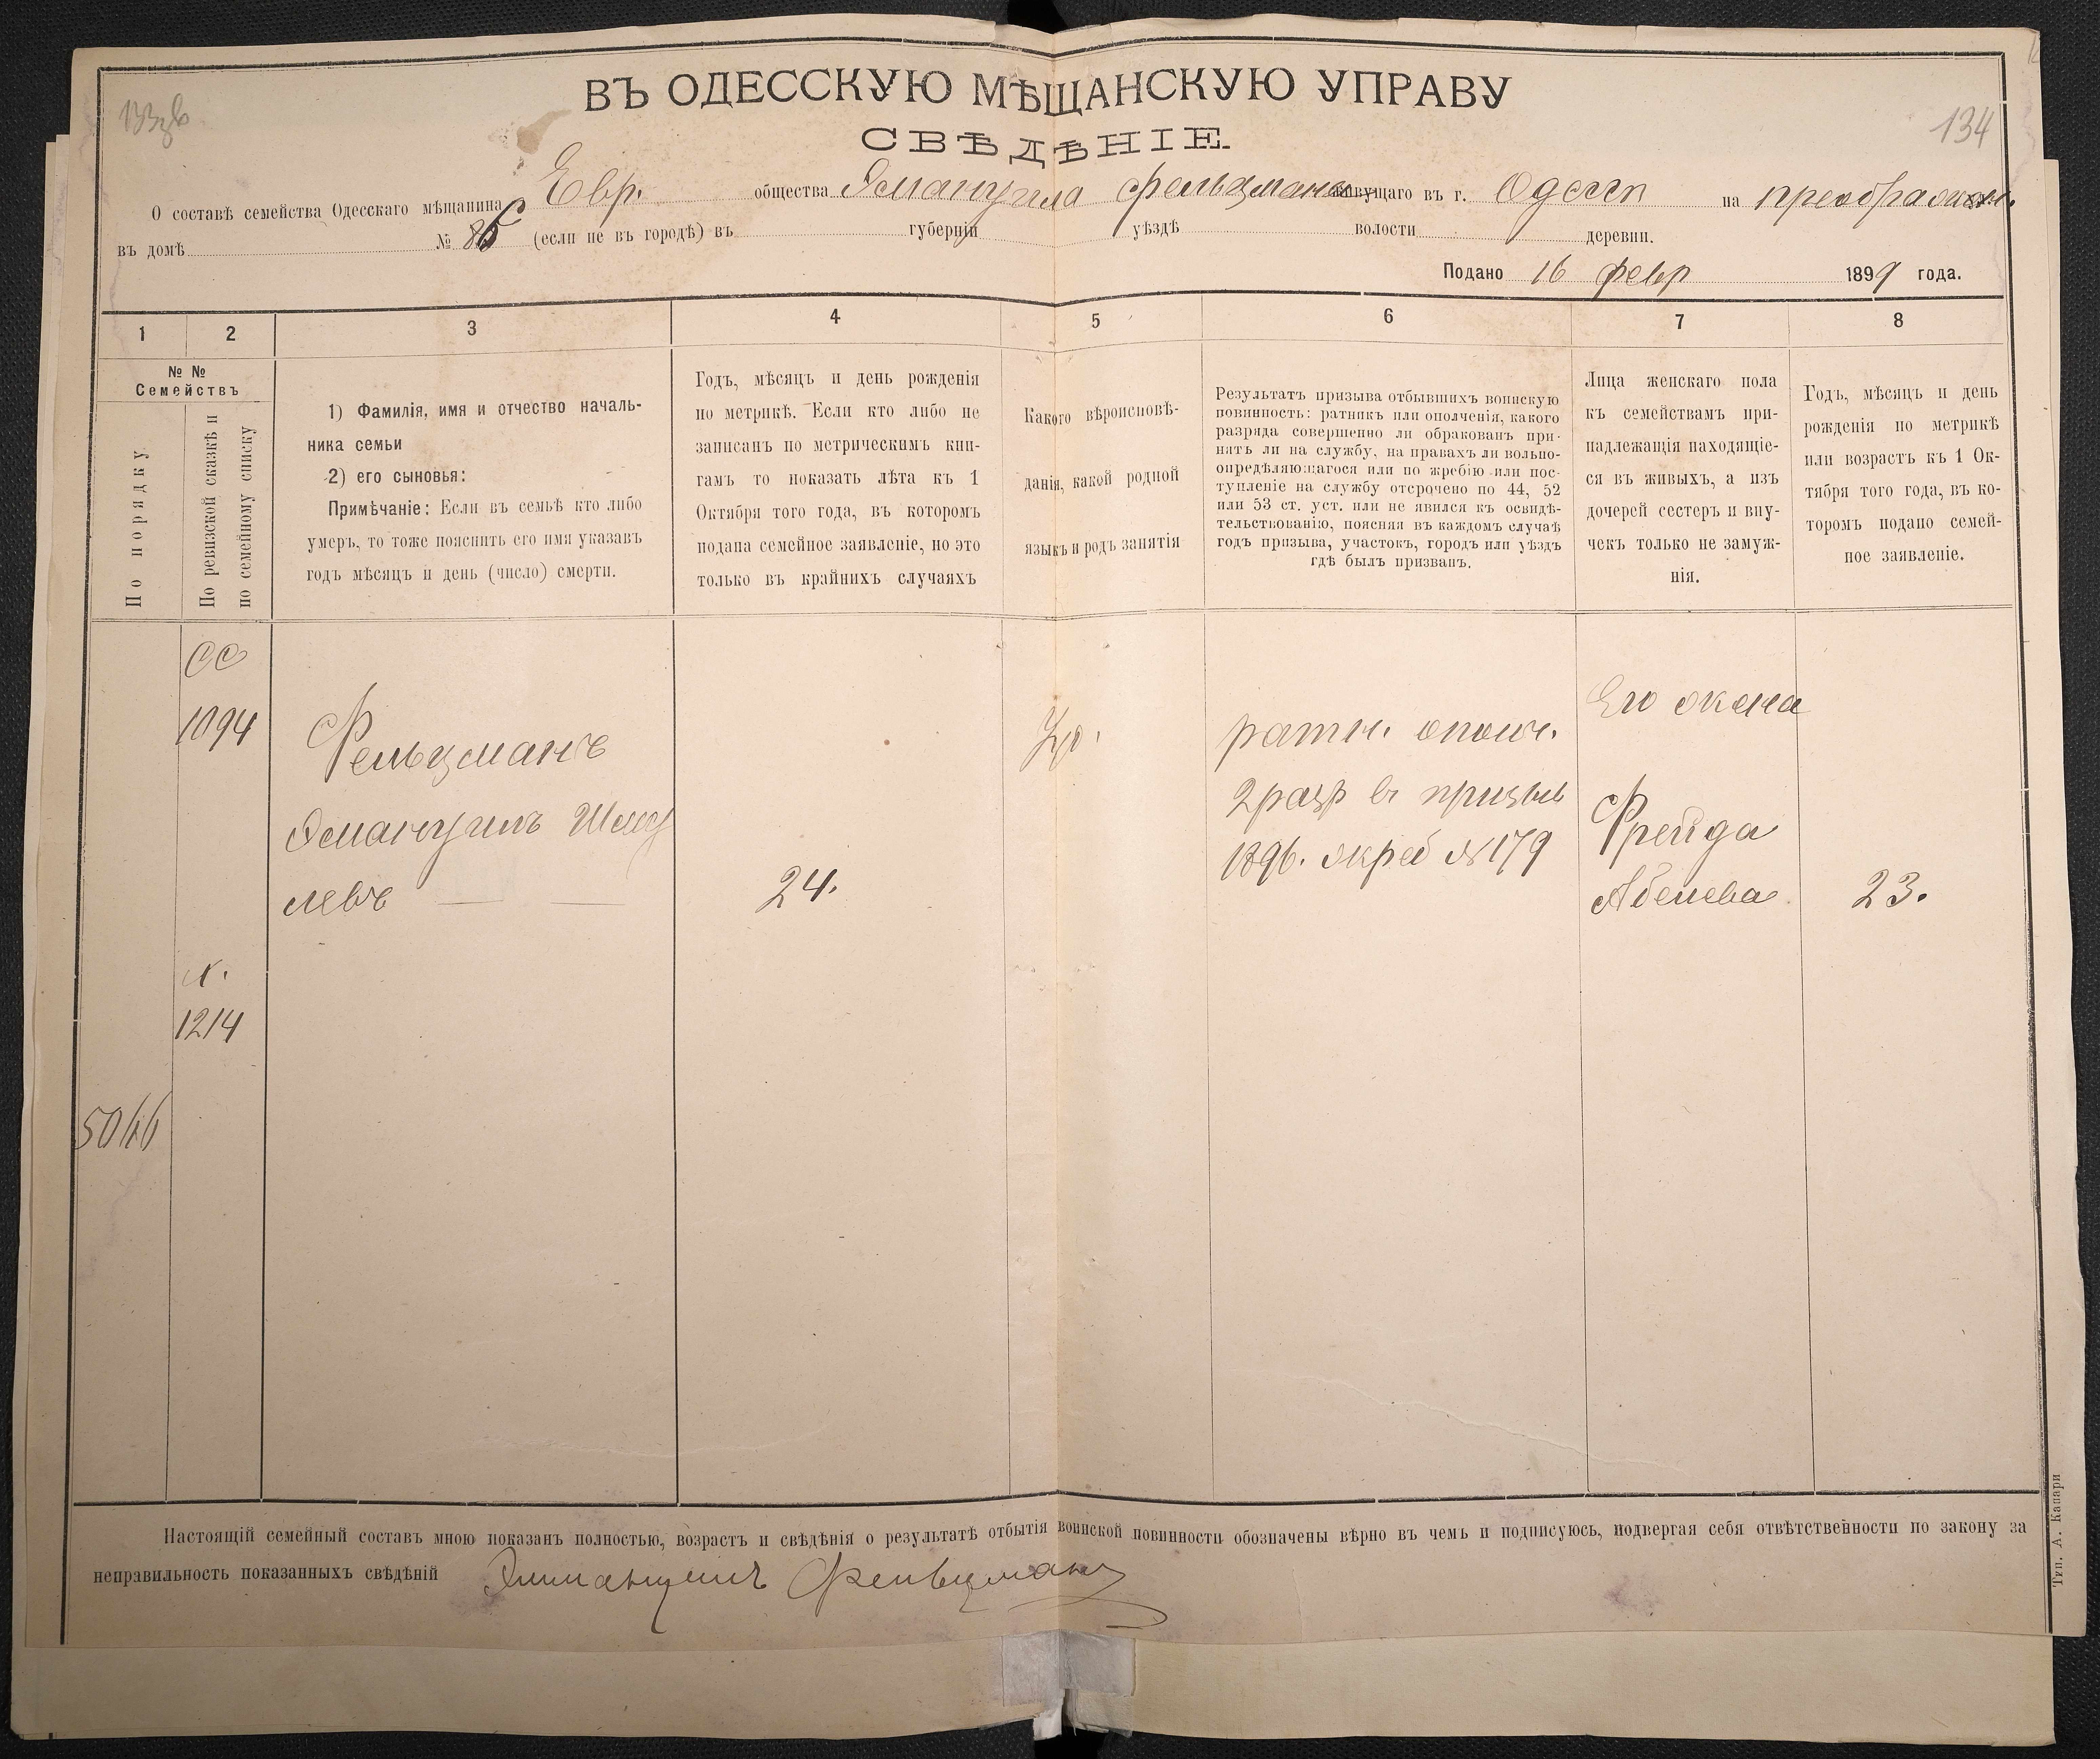 ВЪ ОДЕССКУЮ МѢЩАНСКУЮ УПРАВУ
СВѢДѢНІЕ.
134
О составѣ семейства Одесскаго мѣщанина Евр. общества Эмануила Фельцмана живущаго въ г. Одессѣ на преображен.
въ домѣ № 86 (если не въ городѣ) въ губерніи уѣздѣ волости деревни.
Подано 16 февр 1899 года.
1 2 3 4 5 6 7 8
№ №
Семействъ
По порядку
По ревизской сказкѣ и
по семейному списку
1) Фамилія, имя и отчество началь-
ника семьи
2) его сыновья:
Примѣчаніе: Если въ семьѣ кто либо
умеръ, то тоже пояснить его имя указавъ
годъ мѣсяцъ и день (число) смерти.
Годъ, мѣсяцъ и день рожденія
по метрикѣ. Если кто либо не
записанъ по метрическимъ кни-
гамъ то показать лѣта къ 1
Октября того года, въ которомъ
подана семейное заявленіе, но это
только въ крайнихъ случаяхъ
Какого вѣроисповѣ-
данія, какой родной
языкъ и родъ занятія
Результатъ призыва отбывшихъ воинскую
повинность: ратникъ или ополченія, какого
разряда совершенно ли обракованъ при-
нятъ ли на службу, на правахъ ли вольно-
опредѣляющагося или по жребію или пос-
тупленіе на службу отсрочено по 44, 52
или 53 ст. уст. или не явился къ освидѣ-
тельствованію, поясняя въ каждомъ случаѣ
годъ призыва, участокъ, городъ или уѣздъ
гдѣ былъ призванъ.
Лица женскаго пола
къ семействамъ при-
надлежащія находящіе-
ся въ живыхъ, а изъ
дочерей сестеръ и вну-
чекъ только не замуж-
нія.
Годъ, мѣсяцъ и день
рожденія по метрикѣ
или возрастъ къ 1 Ок-
тября того года, въ ко-
торомъ подано семей-
ное заявленіе.
СС
1094
Фельцманъ
Эмануилъ Шму
левъ
24.
ратн. ополч.
2 разр въ призывъ
1896. жреб №179
Его жена
Фрейда
Абелева
23.
1214
5066
Настоящій семейный составъ мною показанъ полностью, возрастъ и свѣдѣнія о результатѣ отбытія воинской повинности обозначены вѣрно въ чемъ и подписуюсь, подвергая себя отвѣтственности по закону за
неправильность показанныхъ свѣдѣній Эммануилъ Фельцманъ
Тип. А. Капари